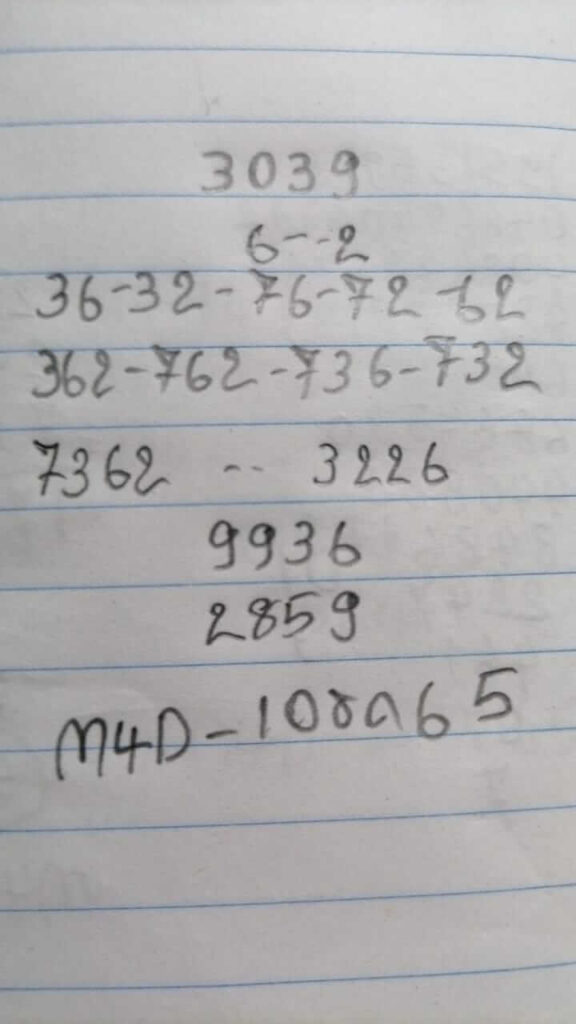 3039
6--2
36-32-76-72-62
362-762-736-732
7362 -- 3226
9936
2859
M4D-10